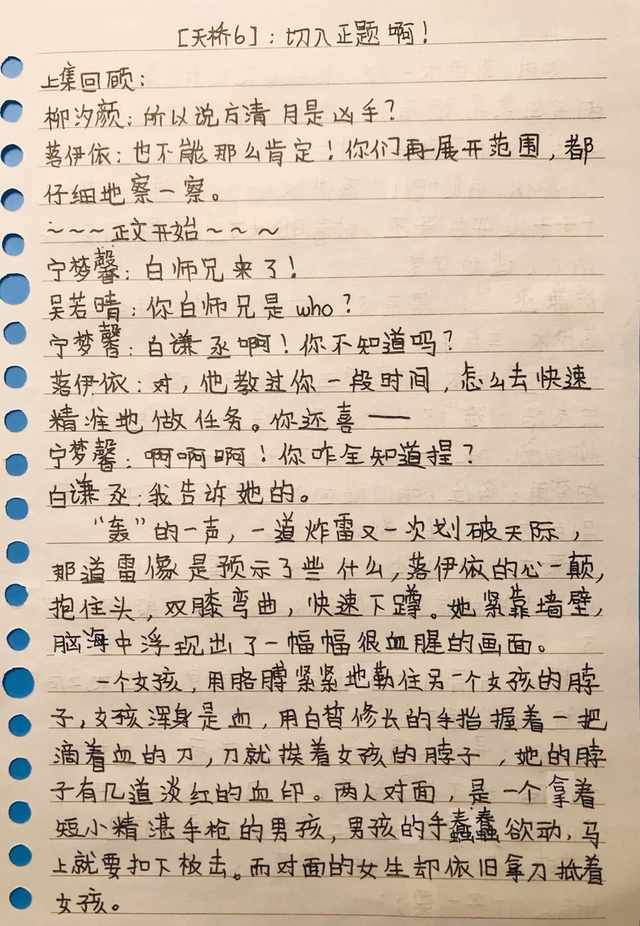 [天桥6]：切入正题啊！
上集回顾：
柳汐颜：所以说方清月是凶手？
落伊依：也不能那么肯定！你们再展开范围，都
仔细地察一察。
~~~正文开始~~~
宁梦馨：白师兄来了！
吴若晴：你白师兄是who？
宁梦馨：白谦丞啊！你不知道吗？
落伊依：对，他教过你一段时间，怎么去快速
精准地做任务。你还喜——
宁梦馨：啊啊啊！你咋全知道捏？
白谦丞：我告诉她的。
“轰”的一声，一道炸雷又一次划破天际，
那道雷像是预示了些什么，落伊依的心一颠，
抱住头，双膝弯曲，快速下蹲。她紧靠墙壁，
脑海中浮现出了一幅幅很血腥的画面。
一个女孩，用胳膊紧紧地勒住另一个女孩的脖
子，女孩浑身是血，用白皙修长的手指握着一把
滴着血的刀，刀就挨着女孩的脖子，她的脖
子有几道淡红的血印。两人对面，是一个拿着
短小精湛手枪的男孩，男孩的手蠢蠢欲动，马
上就要扣下板击。而对面的女生却依旧拿刀抵着
女孩。